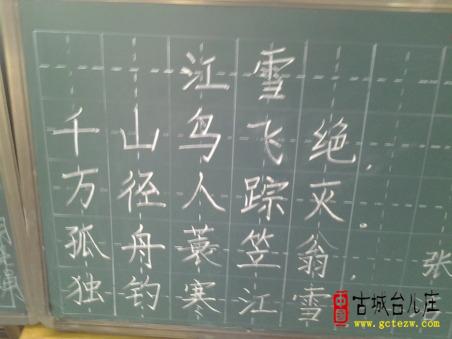 江雪
千山鸟飞绝，
万径人踪灭。
孤舟蓑笠翁，
独钓寒江雪
张
中国
古城台儿庄
www.gctezw.com